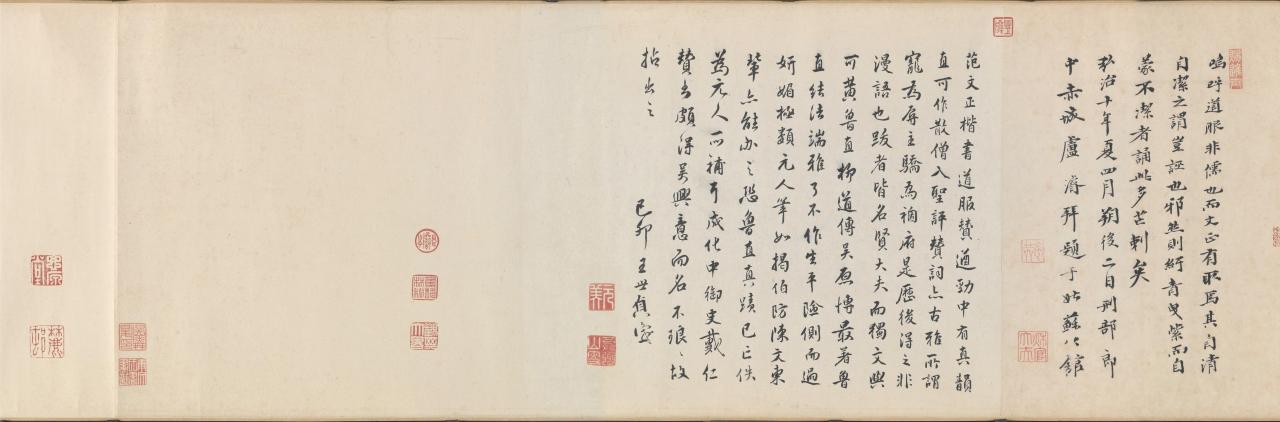 嗚呼道服非儒也而文正有取焉其自清
自潔之謂豈誣也邪然則紆青曳紫而自
蒙不潔者誦此多芒刺矣
弘治十年夏四月朔後二日刑部郎
中赤城盧濬拜題于姑蘇公館
范文正楷書道服贊遒勁中有真韻
直可作散僧入聖評贊詞亦古雅所謂
寵為辱主驕為禍府是歷後得之非
漫語也跋者皆名賢大夫而獨文與
可黃魯直柳道傳吳原博最著魯
直結法端雅了不作生平險側而過
妍媚極類元人筆如揭伯防陳文東
輩亦能辦之恐魯直真蹟已亡佚
為元人所補耳成化中御史戴仁
贊書頗得吳興意而名不琅琅故
拈出之
己卯王世貞題